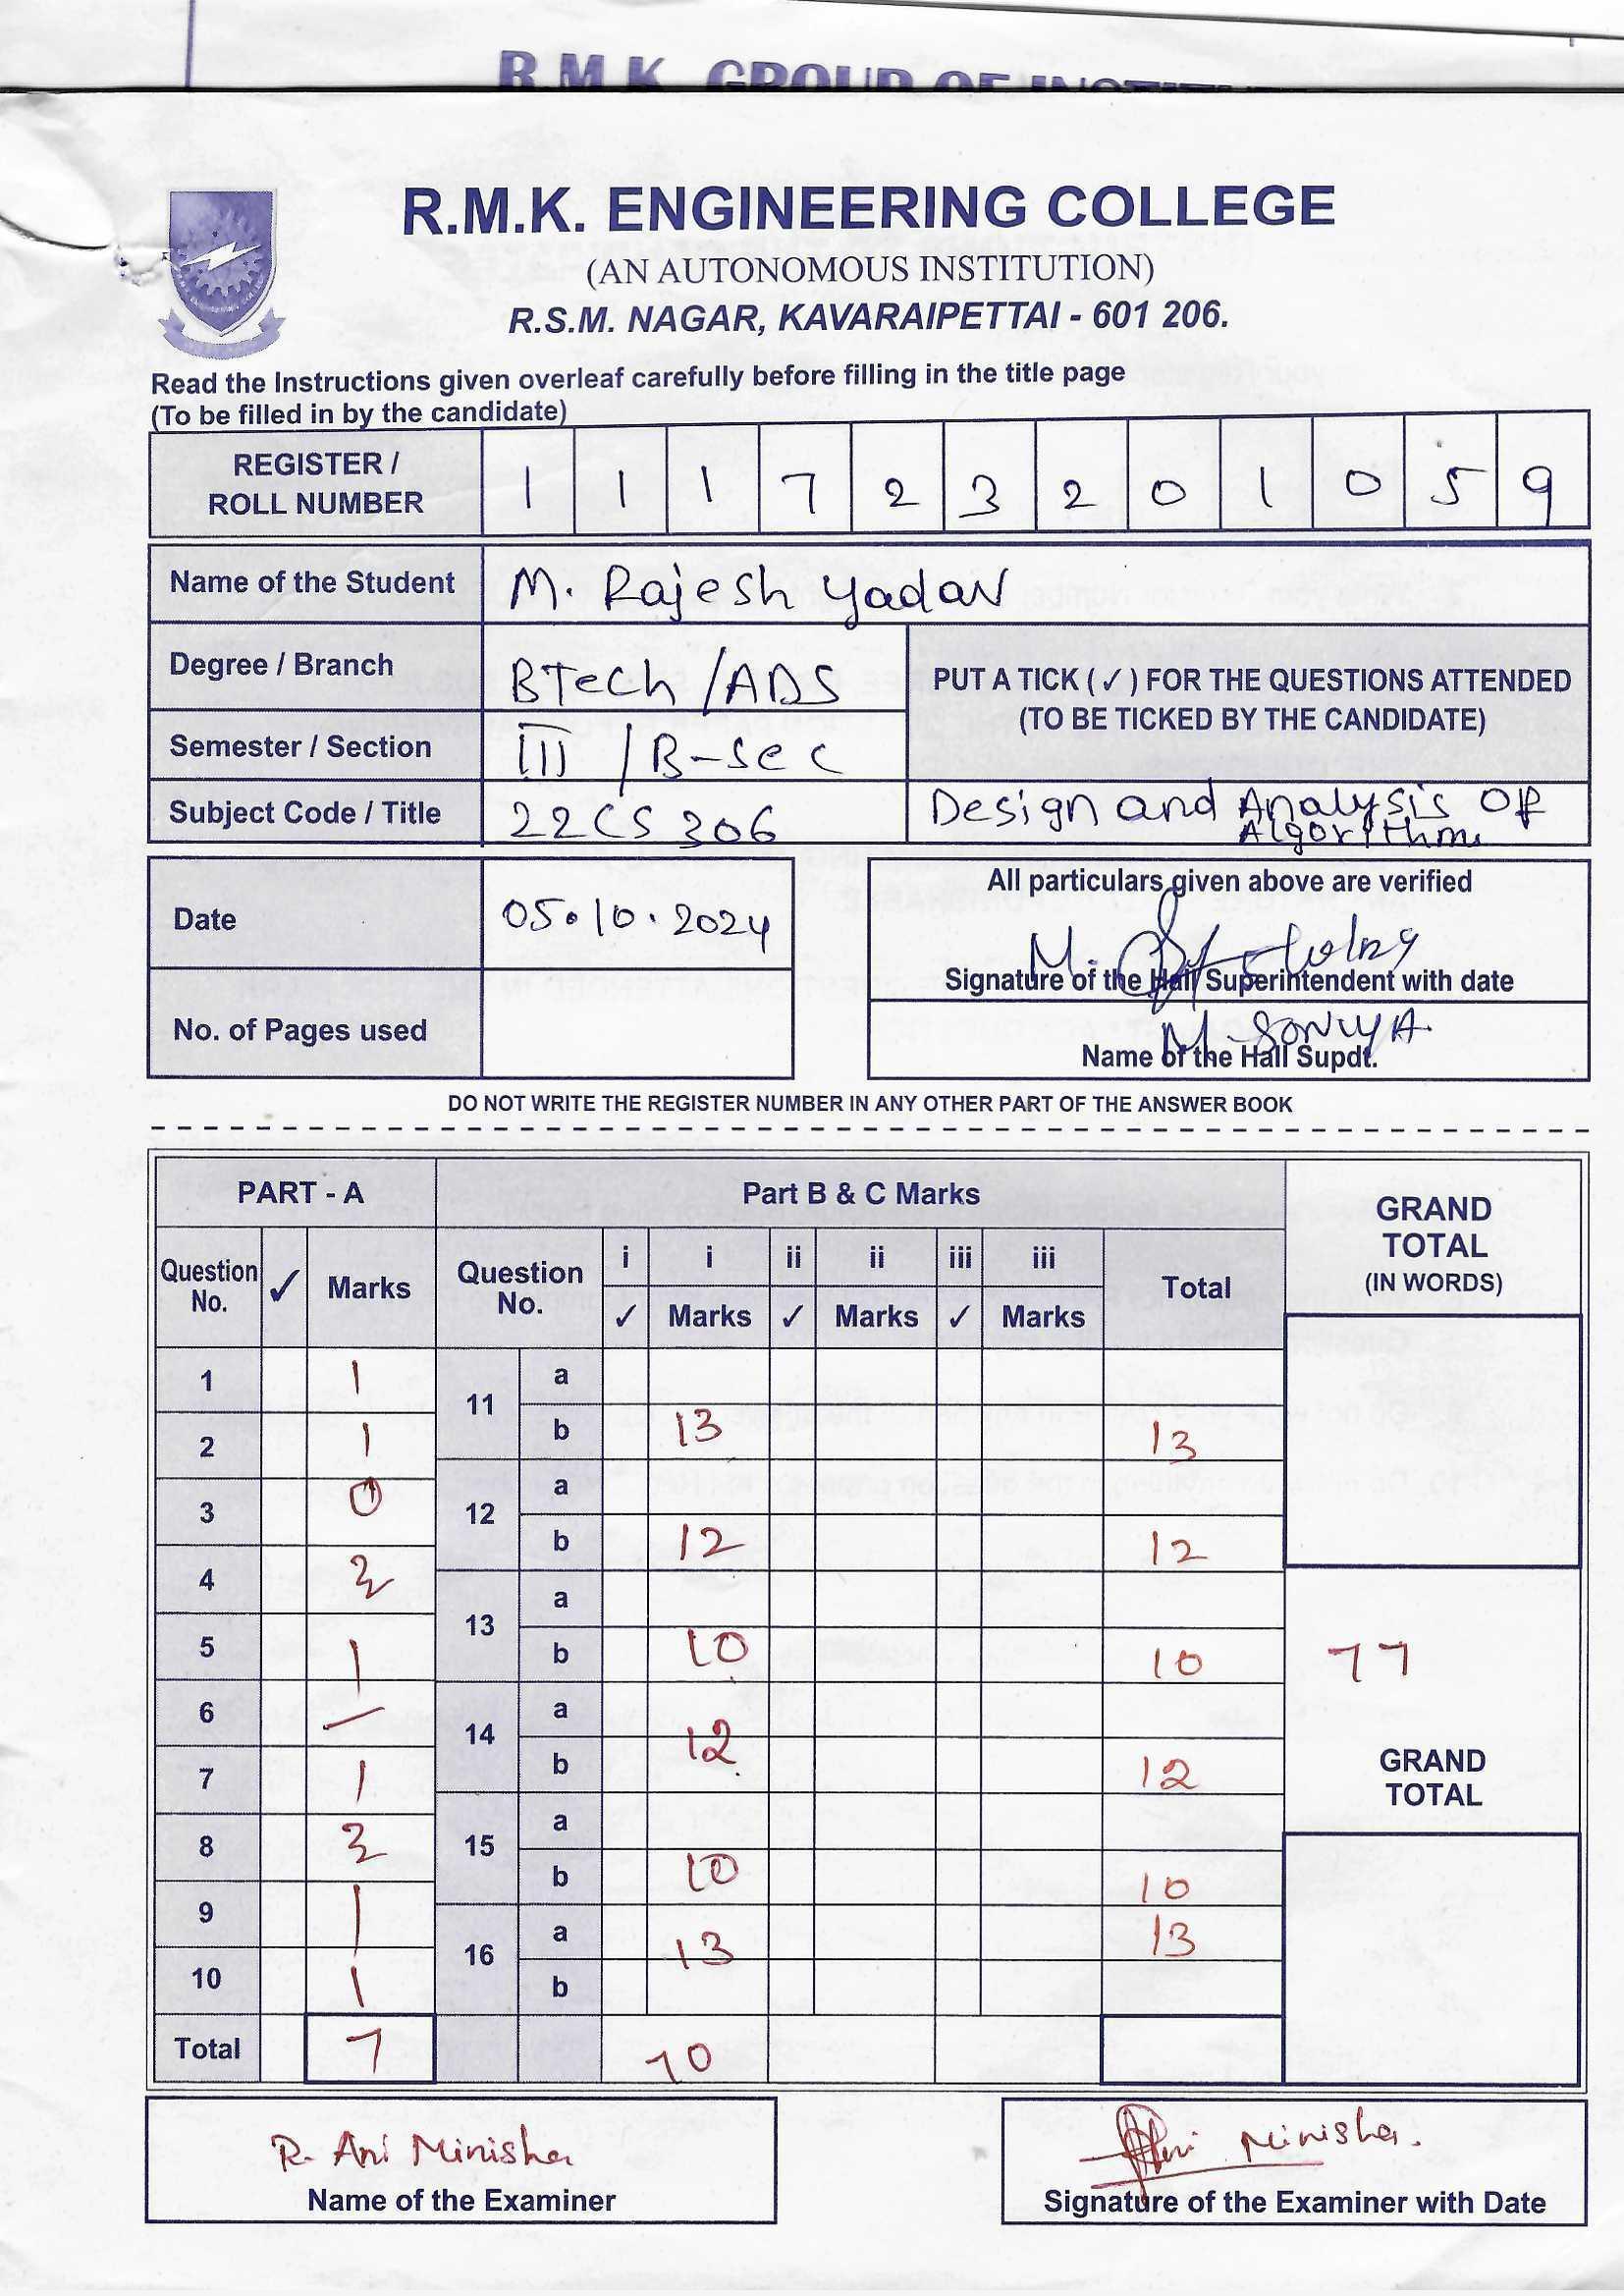 R.M.K. GROUP OF INSTITU
R.M.K. ENGINEERING COLLEGE
(AN AUTONOMOUS INSTITUTION)
R.S.M. NAGAR, KAVARAIPETTAI - 601 206.
Read the Instructions given overleaf carefully before filling in the title page
(To be filled in by the candidate)
REGISTER / ROLL NUMBER 1 1 1 7 2 3 2 0 1 0 5 9
Name of the Student M. Rajesh Yadav
Degree / Branch BTech / ADS
PUT A TICK ( ✓ ) FOR THE QUESTIONS ATTENDED
(TO BE TICKED BY THE CANDIDATE)
Semester / Section III / B-sec
Subject Code / Title 22CS306 Design and Analysis of Algorithms
Date 05.10.2024
All particulars given above are verified
M.
Signature of the Hall Superintendent with date
No. of Pages used
M. SONIYA
Name of the Hall Supdt.
DO NOT WRITE THE REGISTER NUMBER IN ANY OTHER PART OF THE ANSWER BOOK
PART - A Part B & C Marks GRAND TOTAL (IN WORDS)
Question No. ✓ Marks Question No. i i ii ii iii iii Total
✓ Marks ✓ Marks ✓ Marks
1 1 11 a
2 1 b 13 13
3 0 12 a
4 2 b 12 12
13 a
5 1 b 10 10 77
6 — 14 a 12
7 1 b 12 GRAND TOTAL
8 2 15 a
9 1 b 10 10
16 a 13 13
10 1 b
Total 7 70
R. Ani Minisha
Name of the Examiner
Ani Minisha.
Signature of the Examiner with Date